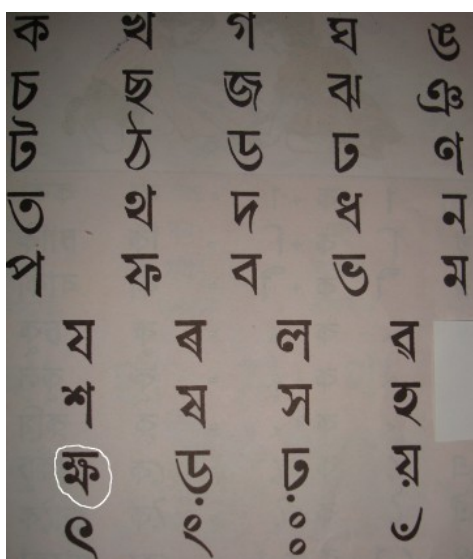 ক খ গ ঘ ঙ
চ ছ জ ঝ ঞ
ট ঠ ড ঢ ণ
ত থ দ ধ ন
প ফ ব ভ ম
য ৰ ল ৱ
শ ষ স হ
ক্ষ ড় ঢ় য়
ৎ ং ঃ ঁ